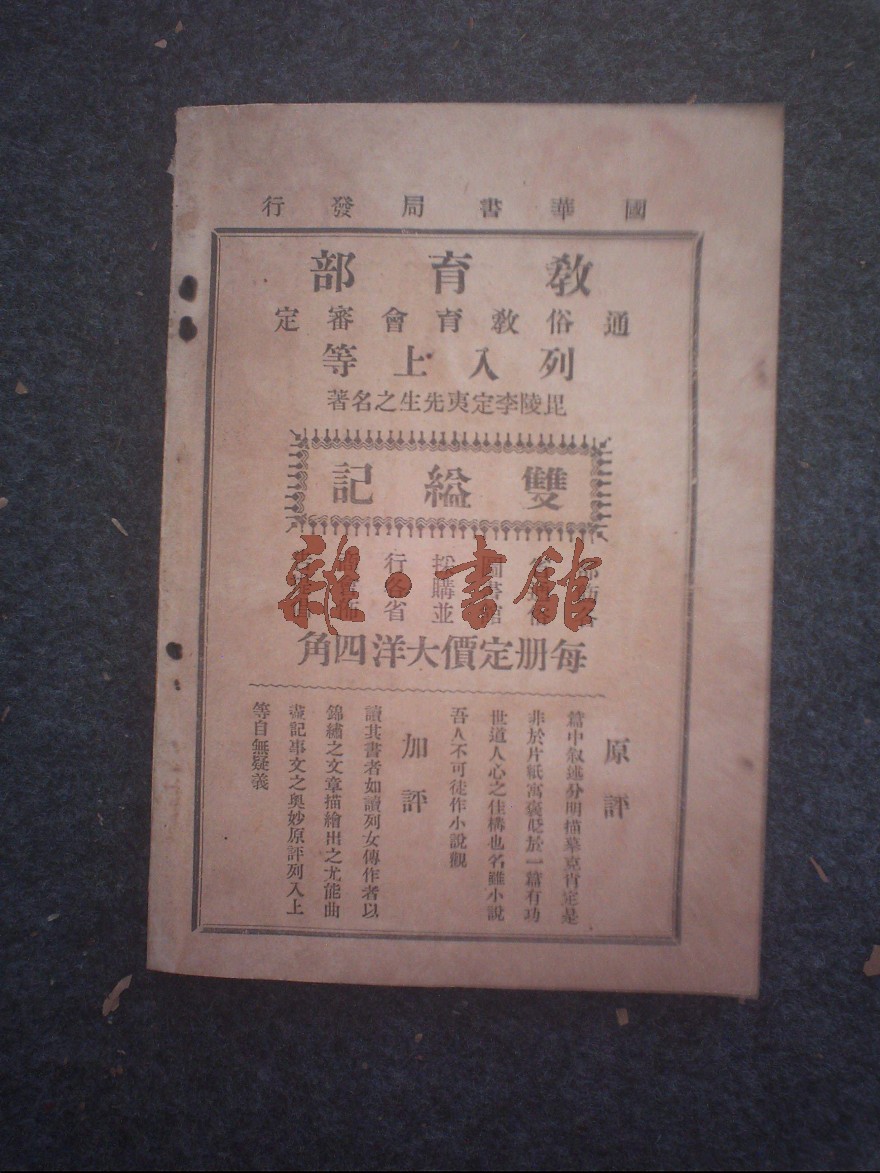 國華書局發行
教育部
通俗教育會審定
列入上等
毘陵李定夷先生之名著
雙縊記
雜·書館
圖書館
採購並
行各省
每册定價大洋四角
原評
篇中叙述分明描摹克肖定是
非於片紙寓褒貶於一篇有功
世道人心之佳構也名雖小說
吾人不可徒作小說觀
加評
讀其書者如讀列女傳作者以
錦繡之文章描繪出之尤能曲
盡記事文之奧妙原評列入上
等自無疑義